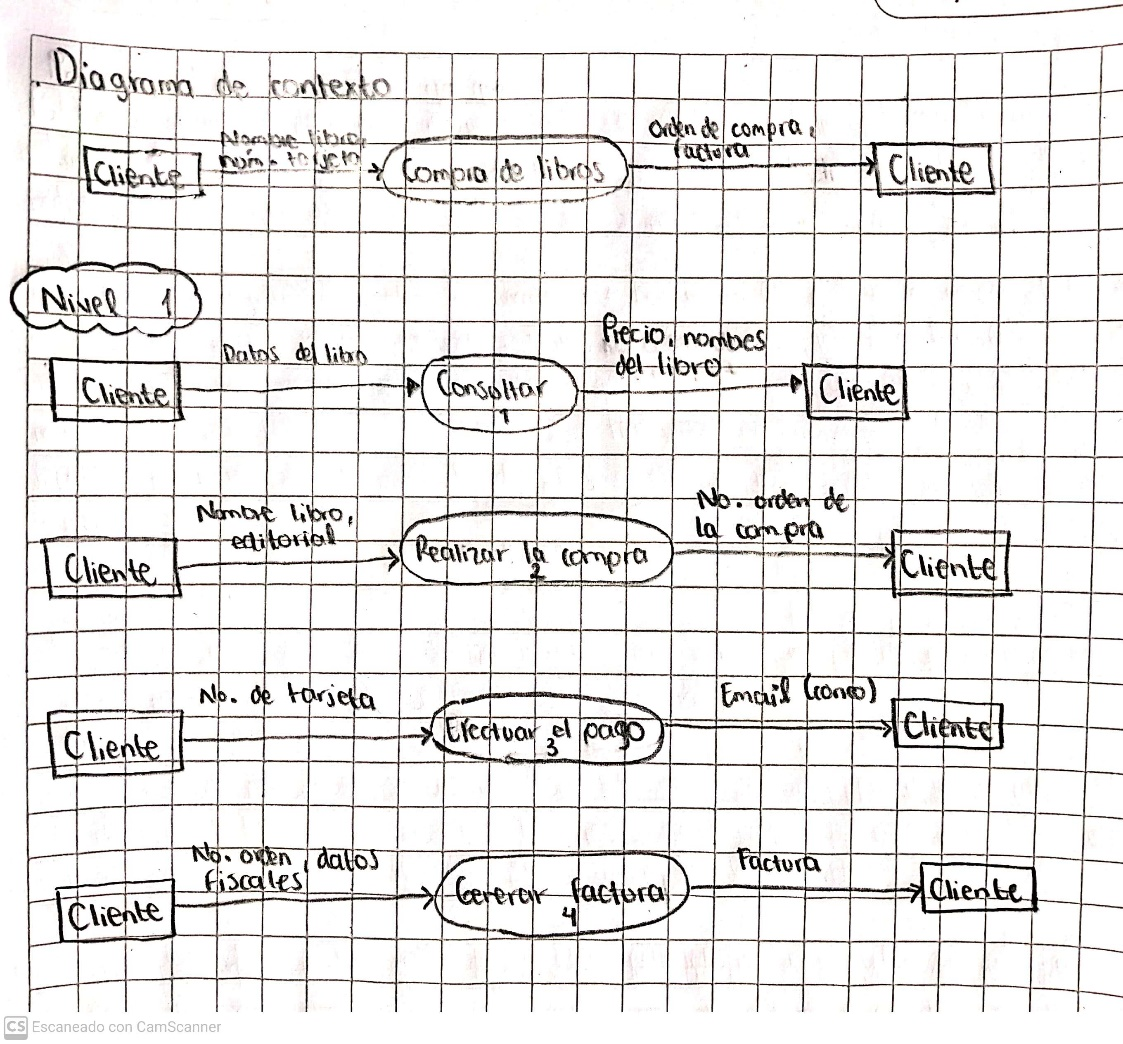 Diagrama de contexto
Nombre libro,
núm. tarjeta
Cliente
Compra de libros
Orden de compra,
factura
Cliente
Nivel 1
Datos del libro
Cliente
Consultar
1
Precio, nombres
del libro.
Cliente
Nombre libro,
editorial
Cliente
Realizar la compra
2
No. orden de
la compra
Cliente
No. de tarjeta
Cliente
Efectuar el pago
3
Email (correo)
Cliente
No. orden, datos
fiscales
Cliente
Generar factura
4
Factura
Cliente
CS Escaneado con CamScanner